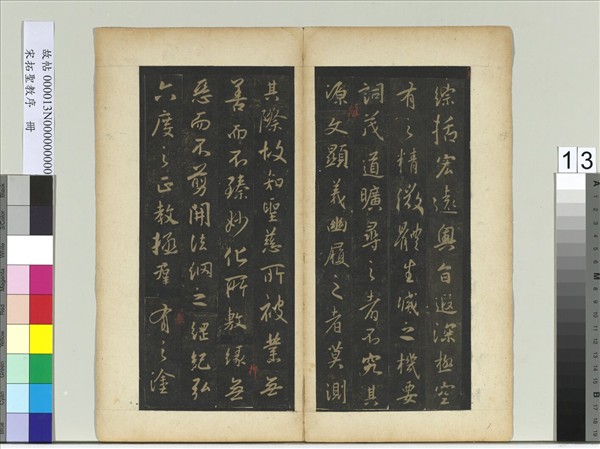 綜括宏遠奧旨遐深極空
有之精微體生滅之機要
詞茂道曠尋之者不究其
源文顯義幽履之者莫測
其際故知聖慈所被業無
善而不臻妙化所敷緣無
惡而不剪開法網之綱紀弘
六度之正教拯群有之塗
故帖 000013N000000000
宋拓聖教序 冊
13